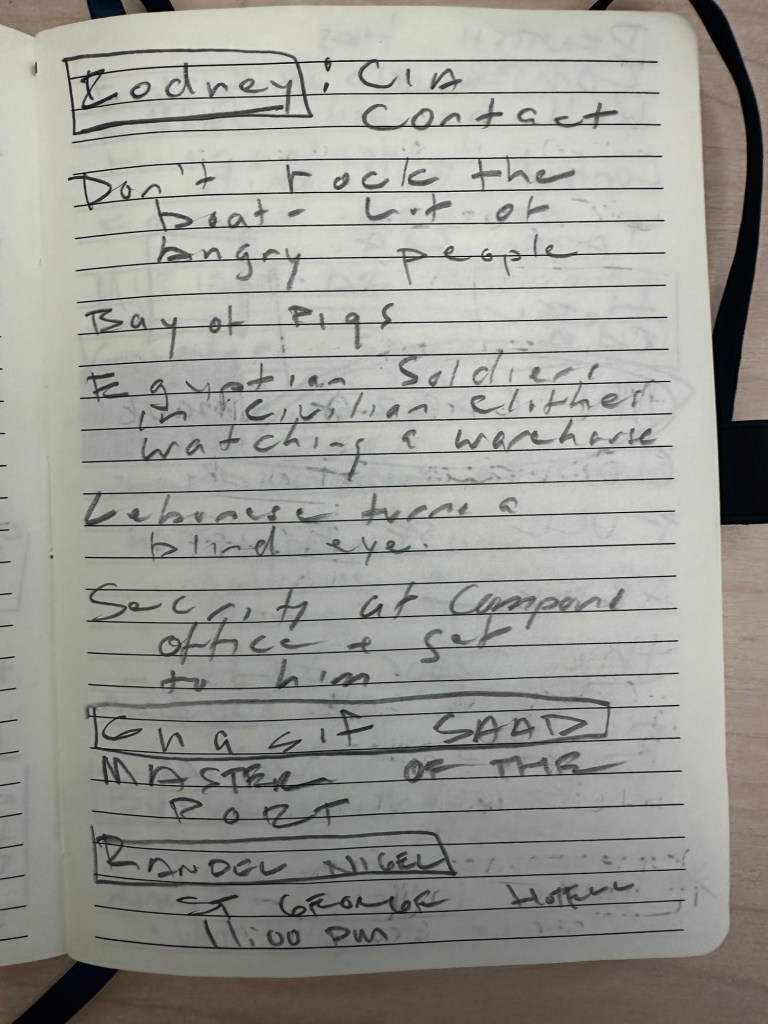 Rodney: CIA
Contact
Don't rock the
boat - lot of
angry people
Bay of Pigs
Egyptian Soldiers
in civilian clothes
watching a warehouse
Lebanese turn a
blind eye.
Security at
office + get
to him.
Gnasif SAAD
MASTER OF THE
PORT
RANDEL NIGEL
ST GEORGE HOTELL
11:00 pm